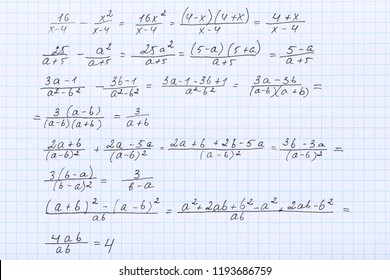 16/x-4 - x²/x-4 = 16x²/x-4 = (4-x)(4+x)/x-4 = 4+x/x-4
25/a+5 - a²/a+5 = 25a²/a+5 = (5-a)(5+a)/a+5 = 5-a/a+5
3a-1/a²-b² - 3b-1/a²-b² = 3a-1-3b+1/a²-b² = 3a-3b/(a-b)(a+b) =
= 3(a-b)/(a-b)(a+b) = 3/a+b
2a+b/(a-b)² + 2a-5a/(a-b)² = 2a+b+2b-5a/(a-b)² = 3b-3a/(a-b)² =
3(b-a)/(b-a)² = 3/b-a
(a+b)²-(a-b)²/ab = a²+2ab+b²-a²+2ab-b²/ab =
4ab/ab = 4
shutterstock.com · 1193686759